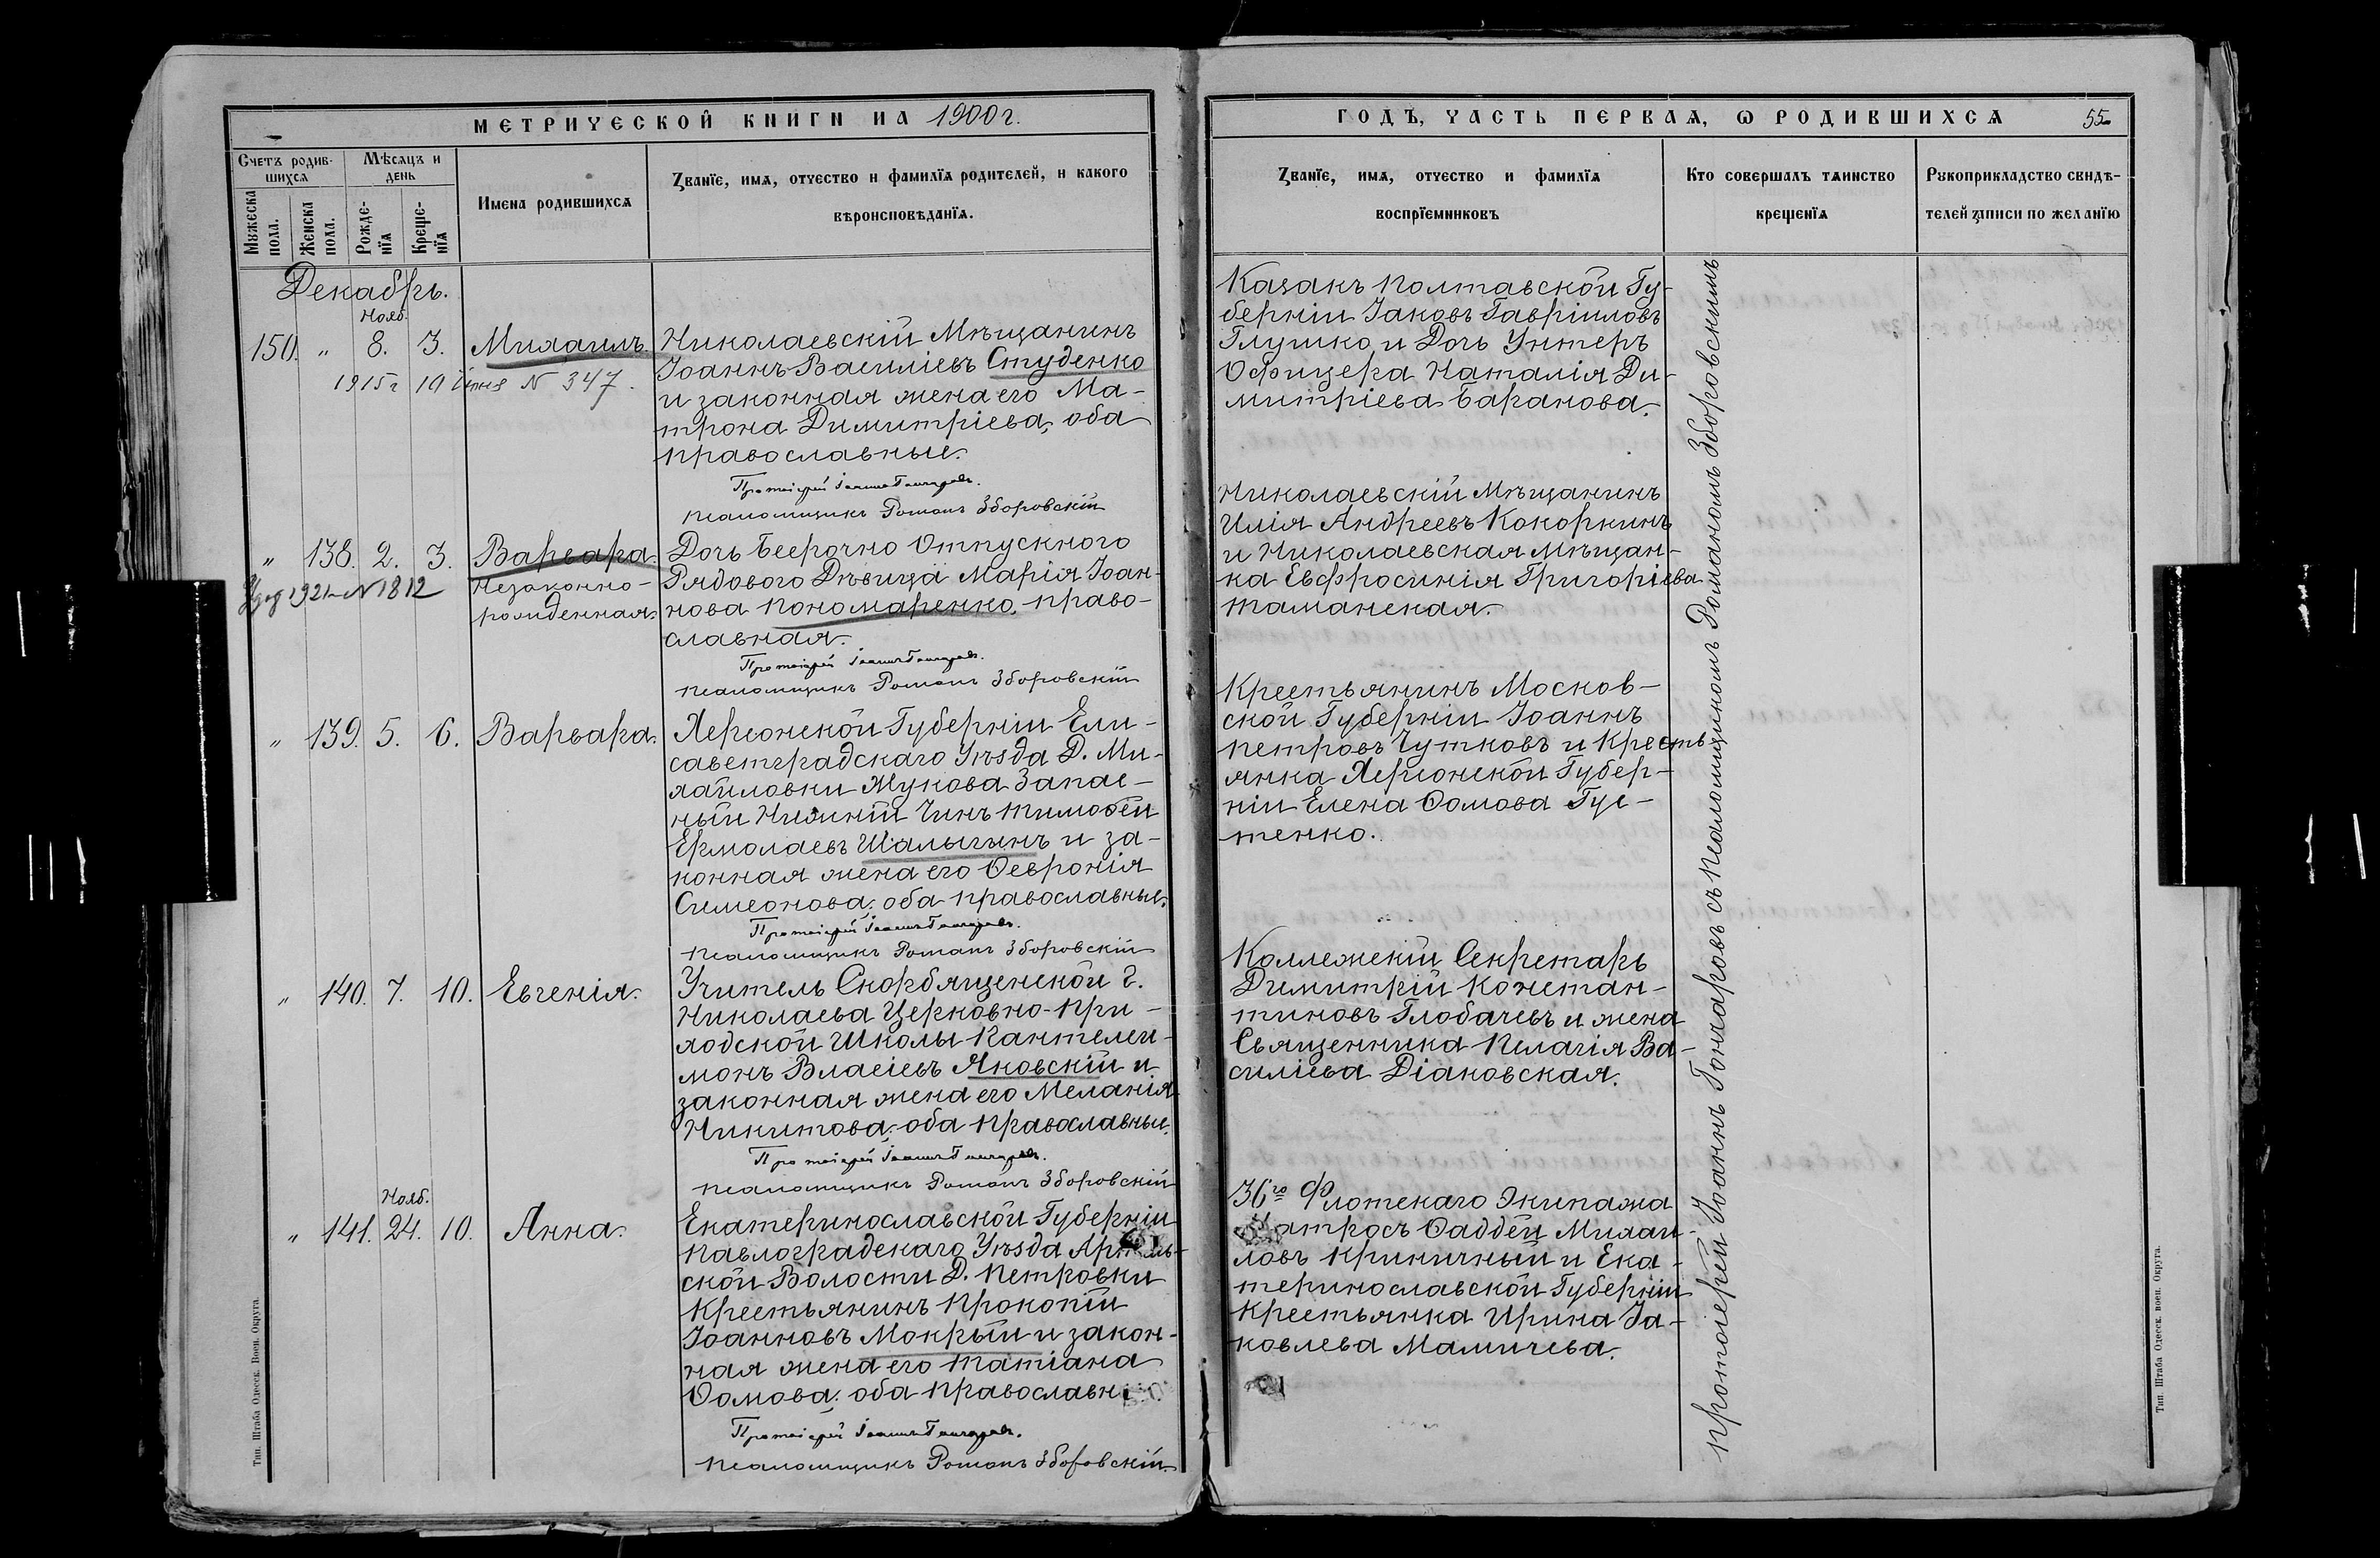 МЕТРИЧЕСКОЙ КНИГИ НА 1900 г.
Счетъ родив-
шихся
Мѣсяцъ и
день
Мужеска
пола.
Женска
пола.
Рожде-
нїя
Креще-
нїя
Имена родившихся
Званїе, имя, отчество и фамилїя родителей, и какого
вѣроисповѣданїя.
Декабрь.
Нояб.
150. " 8. 3. Михаилъ.
1915 г 19 Іюня № 347.
Николаевскій Мѣщанинъ
Іоаннъ Василіевъ Студенко
и законная жена его Ма-
трона Димитріева, оба
православные.
Протоіерей Іоаннъ Гончаровъ.
Псаломщикъ Романъ Зборовскій
" 138. 2. 3. Варвара.
1921 № 1812
Незаконно-
рожденная.
Дочь Безсрочно Отпускного
Рядового Дѣвица Марія Іоан-
нова Пономаренко, право-
славная.
Протоіерей Іоаннъ Гончаровъ.
Псаломщикъ Романъ Зборовскій
" 139. 5. 6. Варвара.
Херсонской Губерніи Ели-
саветградскаго Уѣзда Д. Ми-
хайловки Жукова Запас-
ный Нижній Чинъ Тимоѳей
Ермолаевъ Шалыгинъ и за-
конная жена его Ѳевронія
Симеонова; оба православные.
Протоіерей Іоаннъ Гончаровъ.
Псаломщикъ Романъ Зборовскій
" 140. 7. 10. Евгенія.
Учитель Скорбященской г.
Николаева Церковно-При-
ходской Школы Пантелеи-
монъ Власіевъ Яновскій и
законная жена его Меланія
Никитова; оба православные.
Протоіерей Іоаннъ Гончаровъ.
Псаломщикъ Романъ Зборовскій
Нояб.
" 141. 24. 10. Анна.
Екатеринославской Губерніи
Павлоградскаго Уѣзда
ской Волости Д. Петровки
Крестьянинъ Прокопій
Іоанновъ Мокрый и закон-
ная жена его Татіана
Ѳомова; оба православн
Протоіерей Іоаннъ Гончаровъ.
Псаломщикъ Романъ Зборовскій.
Тип. Штаба Одесск. Воен. Округа.
ГОДЪ, ЧАСТЬ ПЕРВАЯ, Ѡ РОДИВШИХСЯ 55
Званїе, имя, отчество и фамилїя
воспрїемниковъ
Кто совершалъ таинство
крещенїя
Рукоприкладство свидѣ-
телей записи по желанїю
Казакъ Полтавской Гу-
берніи Іаковъ Гавріиловъ
Глушко и Дочь Унтеръ
Офицера Наталія Ди-
митріева Баранова.
Николаевскій Мѣщанинъ
Илія Андреевъ Кокоркинъ
и Николаевская Мѣщан-
ка Евфросинія Григоріева
Таманская.
Крестьянинъ Москов-
ской Губерніи Іоаннъ
Петровъ Чутковъ и Кресть-
янка Херсонской Губер-
ніи Елена Ѳомова Гус-
тенко.
Коллежскій Секретарь
Димитрій Констан-
тиновъ Глобачевъ и жена
Священника Пелагія Ва-
силіева Діаковская.
36го Флотскаго Экипажа
Матросъ Ѳаддей Михаи-
ловъ Криничный и Ека-
теринославской Губерніи
Крестьянка Ирина Іа-
ковлева Мамичева.
Протоіерей Іоаннъ Гончаровъ съ Псаломщикомъ Романомъ Зборовскимъ
Тип. Штаба Одесск. воен. Округа.